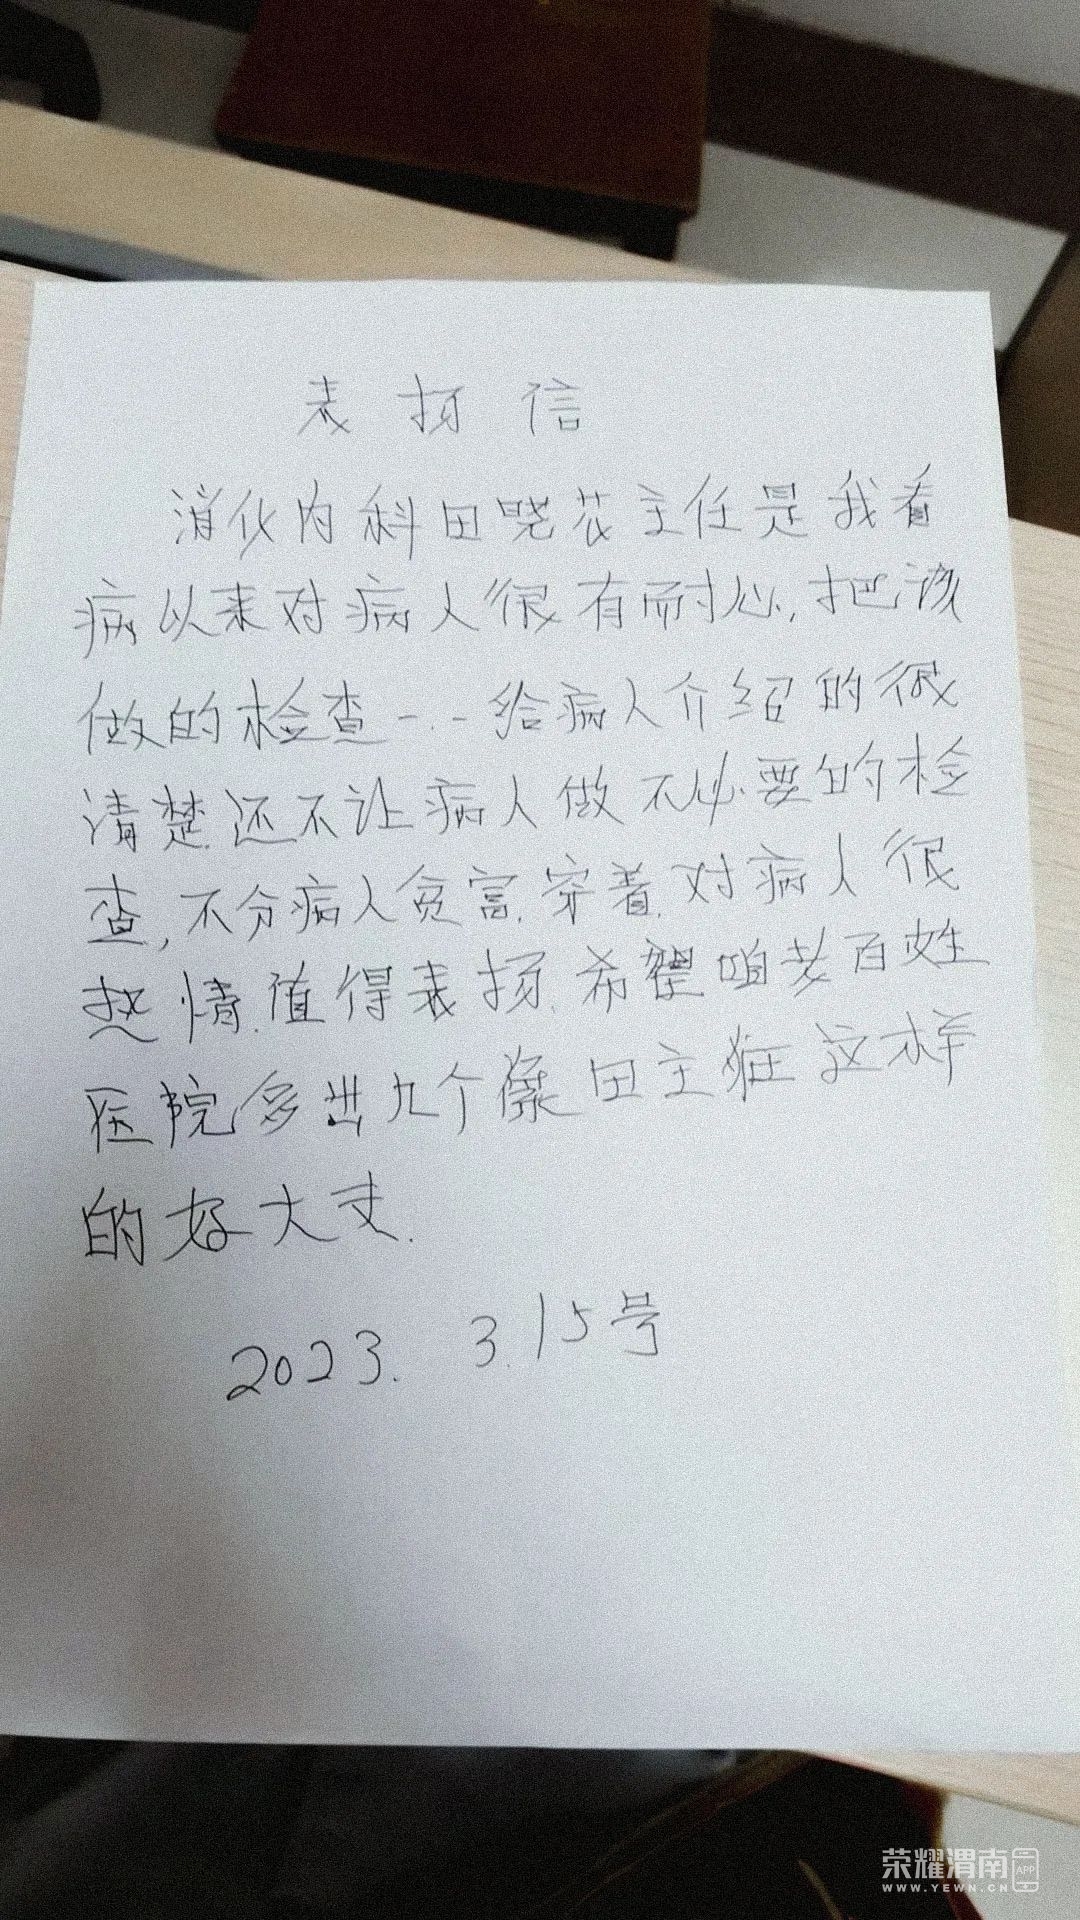 表扬信
消化内科田晓花主任是我看
病以来对病人很有耐心,把该
做的检查一一给病人介绍的很
清楚.还不让病人做不必要的检
查,不分病人贫富.穿着.对病人很
热情.值得表扬.希望咱老百姓
医院多出几个像田主任这样
的好大丈.
2023. 3.15号
荣耀渭南APP
WWW.YEWN.CN